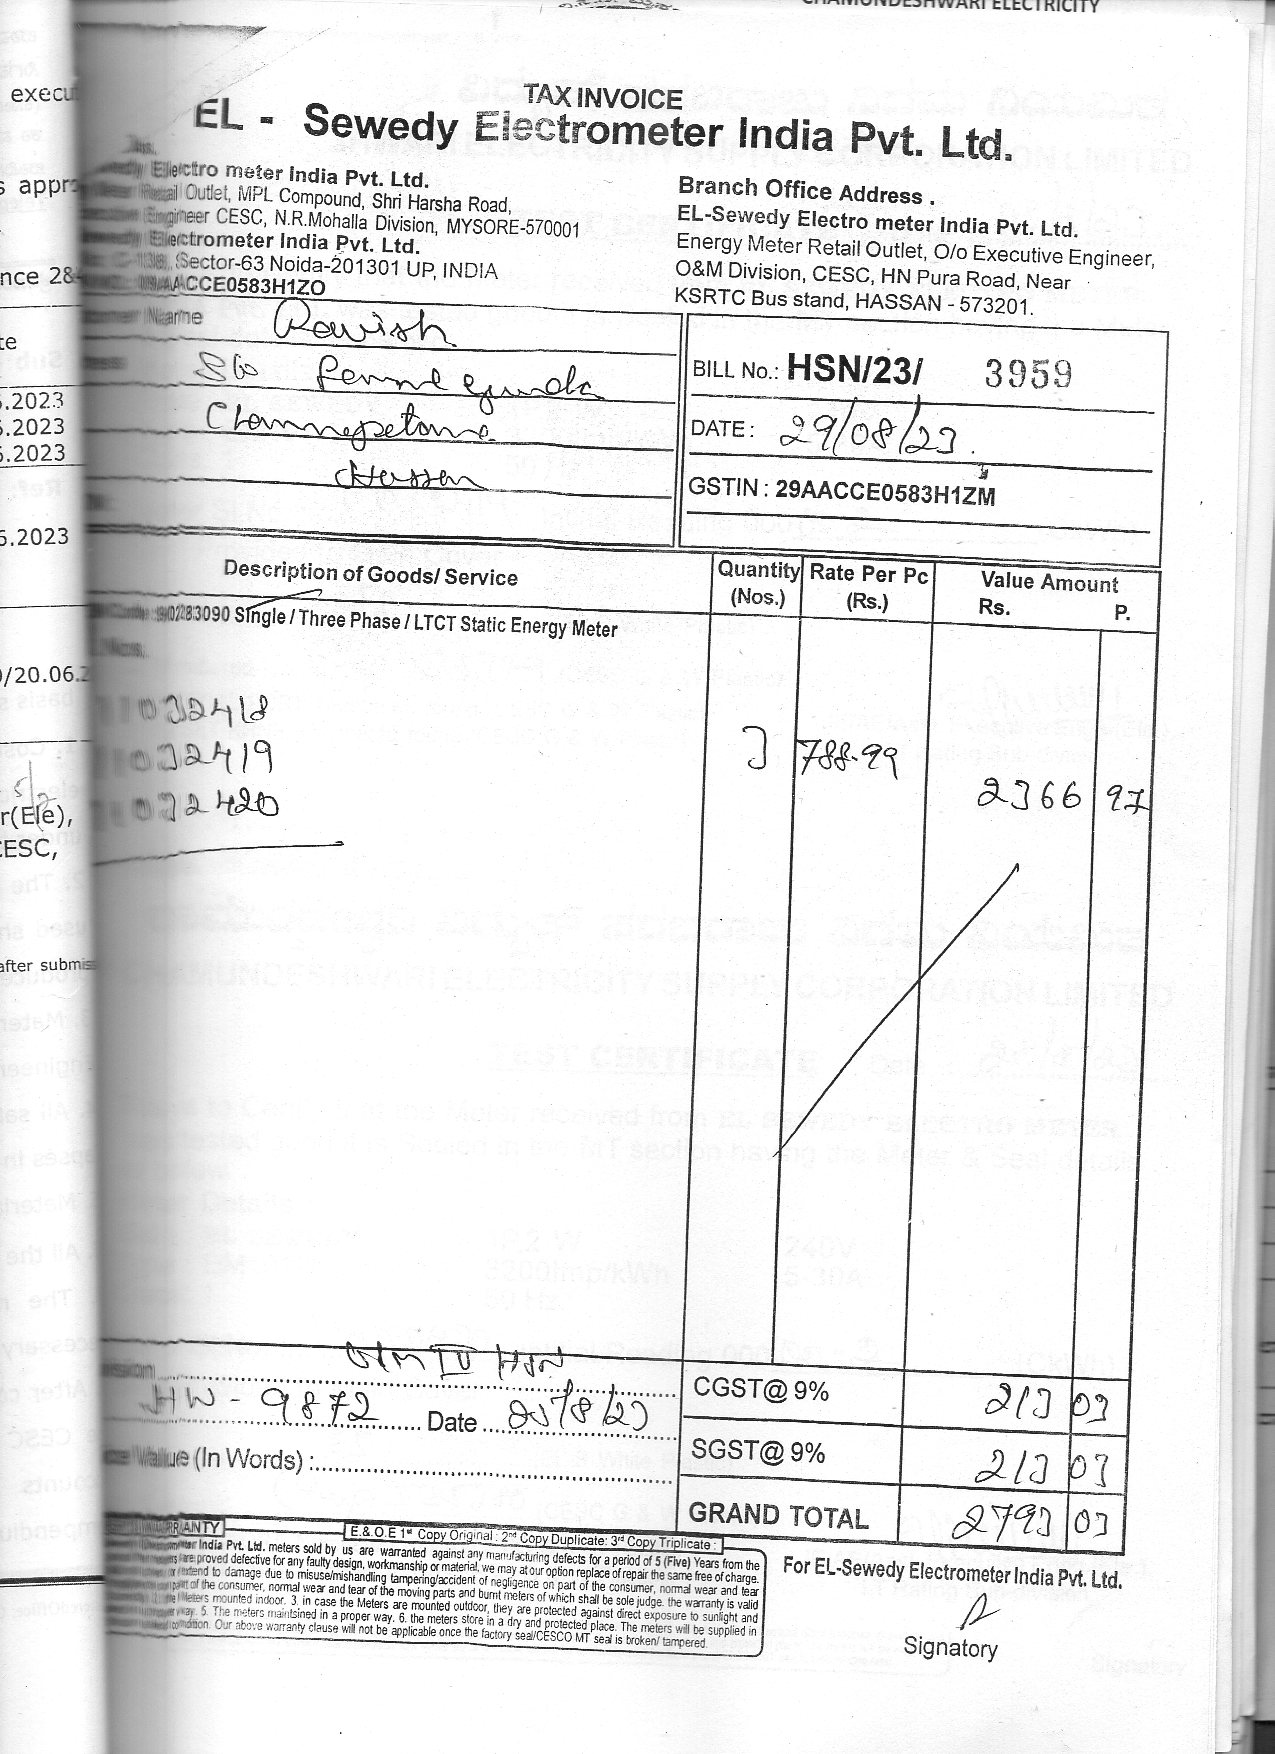 CHAMUNDESHWARI ELECTRICITY
TAX INVOICE
EL - Sewedy Electrometer India Pvt. Ltd.
Electro meter India Pvt. Ltd.
Retail Outlet, MPL Compound, Shri Harsha Road,
Engineer CESC, N.R.Mohalla Division, MYSORE-570001
Electrometer India Pvt. Ltd.
Sector-63 Noida-201301 UP, INDIA
AACCE0583H1ZO
Branch Office Address .
EL-Sewedy Electro meter India Pvt. Ltd.
Energy Meter Retail Outlet, O/o Executive Engineer,
O&M Division, CESC, HN Pura Road, Near
KSRTC Bus stand, HASSAN - 573201.
Name Ravish
S/o
Hassan
BILL No.: HSN/23/ 3959
DATE: 29/08/23.
GSTIN : 29AACCE0583H1ZM
Description of Goods/ Service Quantity (Nos.) Rate Per Pc (Rs.) Value Amount Rs. P.
90283090 Single / Three Phase / LTCT Static Energy Meter
032418
032419
032420
3 788.99 2366 97
O/M IV HSN
CGST@ 9% 213 03
HW - 9872 Date
SGST@ 9% 213 03
Value (In Words) :
GRAND TOTAL 2793 03
WARRANTY
E.& O.E 1st Copy Original : 2nd Copy Duplicate: 3rd Copy Triplicate :
India Pvt. Ltd. meters sold by us are warranted against any manufacturing defects for a period of 5 (Five) Years from the
are proved defective for any faulty design, workmanship or material, we may at our option replace of repair the same free of charge.
extend to damage due to misuse/mishandling tampering/accident of negligence on part of the consumer, normal wear and tear
part of the consumer, normal wear and tear of the moving parts and burnt meters of which shall be sole judge. the warranty is valid
Meters mounted indoor. 3. in case the Meters are mounted outdoor, they are protected against direct exposure to sunlight and
way. 5. The meters maintsined in a proper way. 6. the meters store in a dry and protected place. The meters will be supplied in
condition. Our above warranty clause will not be applicable once the factory seal/CESCO MT seal is broken/ tampered.
For EL-Sewedy Electrometer India Pvt. Ltd.
Signatory
execu
appr
nce 2&
.2023
.2023
.2023
.2023
/20.06.2
r(Ele),
CESC,
after submis